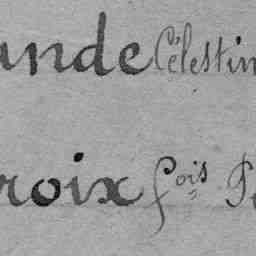 ande Célestin
roix fois P